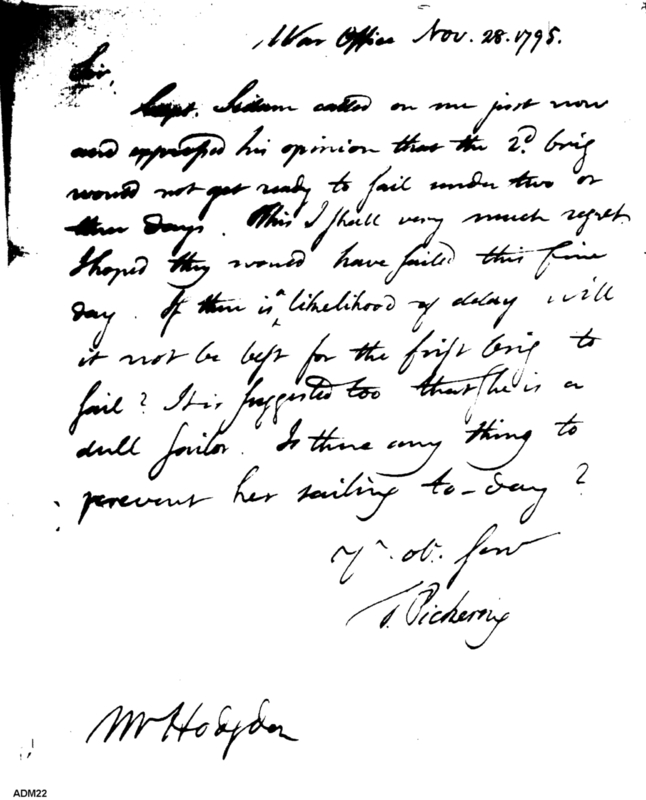 War Office Nov. 28. 1795.
Sir,
Capt. called on me just now
and expressed his opinion that the 2d. brig
would not get ready to sail under two or
three days. This I shall very much regret.
I hoped they would have sailed this fine
day. If there is a likelihood of delay will
it not be best for the first brig to
sail? It is suggested too that she is a
dull sailor. Is there any thing to
prevent her sailing to-day?
Yr. ob. serv
T. Pickering
Mr Hodgdon
ADM22